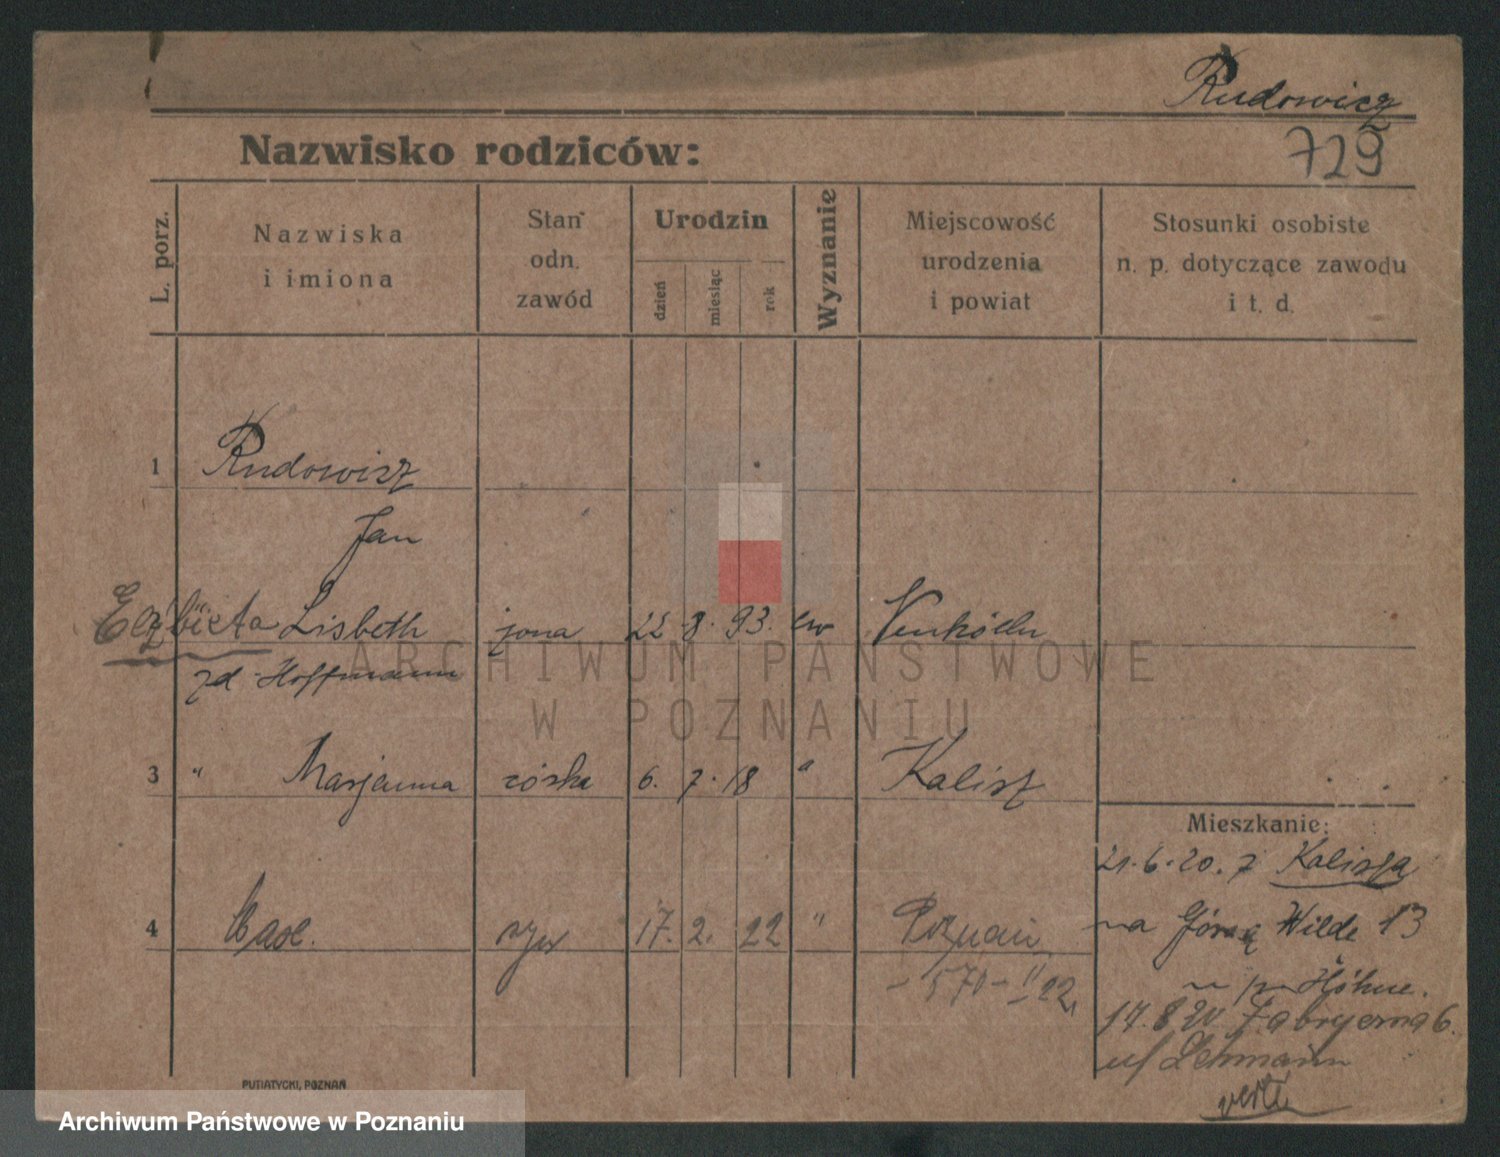 Rudowicz
729
Nazwisko rodziców:
L. porz.
Nazwiska
i imiona
Stan
odn.
zawód
Urodzin
dzień
miesiąc
rok
Wyznanie
Miejscowość
urodzenia
i powiat
Stosunki osobiste
n. p. dotyczące zawodu
i t. d.
1 Rudowisz
Jan
Elżbieta Lisbeth żona 22 8. 93. ew
zd Hoffmann
3 " Marjanna córka 6. 7. 18 " Kalisz
4 syn 17. 2. 22 " Poznań
- 570 - II 22
Mieszkanie:
21.6.20. z Kalisza
na Górną Wilde 13
Höhne.
17.8.20 Fabryczna 6.
Lehmann
verte
PUTIATYCKI, POZNAŃ
ARCHIWUM PAŃSTWOWE
W POZNANIU
Archiwum Państwowe w Poznaniu